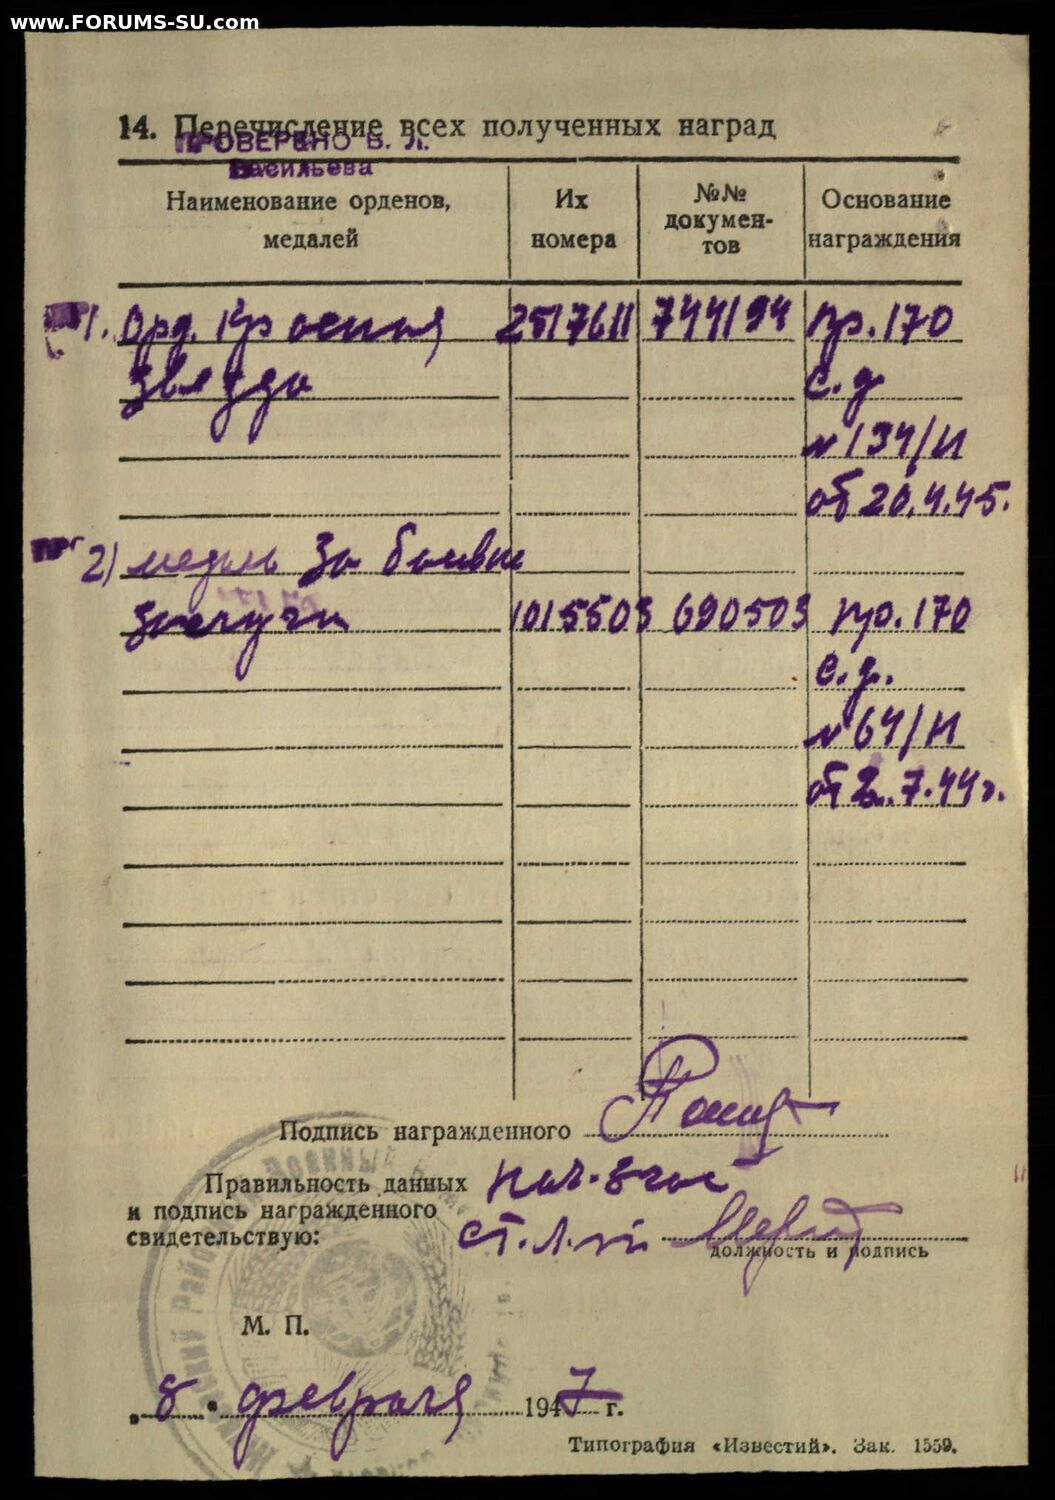 www.FORUMS-SU.com
14. Перечисление всех полученных наград
ПРОВЕРЕНО В. Л.
Васильева
Наименование орденов, медалей
Их номера
№№ докумен-тов
Основание награждения
1. Орд. Красная 2517611 744194 пр. 170
звезда с. д
№ 134/н
от 20.4.45.
2) медаль За боевые
заслуги 1015503 690503 пр. 170
с. д.
№ 64/н
от 2.7.44 г.
Подпись награжденного
Правильность данных
и подпись награженного
свидетельствую:
нач. 3 час
ст. л-т
должность и подпись
М. П.
„8“ февраля 1947 г.
Типография «Известий». Зак. 1559.